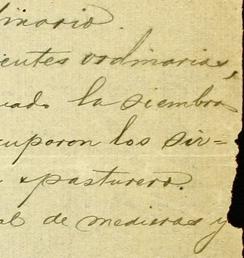 dinario.
ientes ordinarias,
uado la siembra
cuparon los sir=
pasturero.
al de medieras y